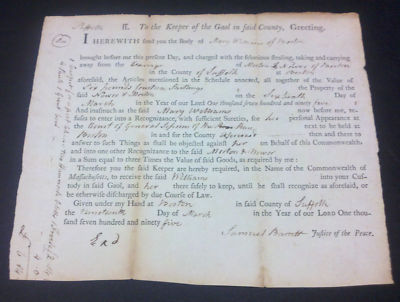 Suffolk, ss. To the Keeper of the Gaol in said County, Greeting.
I HEREWITH send you the Body of Mary Williams of Boston
brought before me this present Day, and charged with the felonious stealing, taking and carrying
away from the of
in the County of Suffolk at Boston
aforesaid, the Articles mentioned in the Schedule annexed, all together of the Value
of Six pounds Shillings the Property of the
said on the Day of
March in the Year of our Lord One thousand seven hundred and ninety five
And inasmuch as the said Mary Williams now before me, re-
fuses to enter into a Recognizance, with sufficient Sureties, for her personal Appearance at
the Court of General Sessions of the Peace next to be held at
Boston in and for the County aforesaid then and there to
answer to such Things as shall be objected against her on Behalf of this Commonwealth;
and into one other Recognizance to the said
in a Sum equal to three Times the Value of said Goods, as required by me:
Therefore you the said Keeper are hereby required, in the Name of the Commonwealth of
Massachusetts, to receive the said Williams into your Cus-
tody in said Gaol, and her there safely to keep, until she shall recognize as aforesaid, or
be otherwise discharged by due Course of Law.
Given under my Hand at Boston in said County of Suffolk
the nineteenth Day of March in the Year of our LORD One thou-
sand seven hundred and ninety five
Samuel Barrett Justice of the Peace.